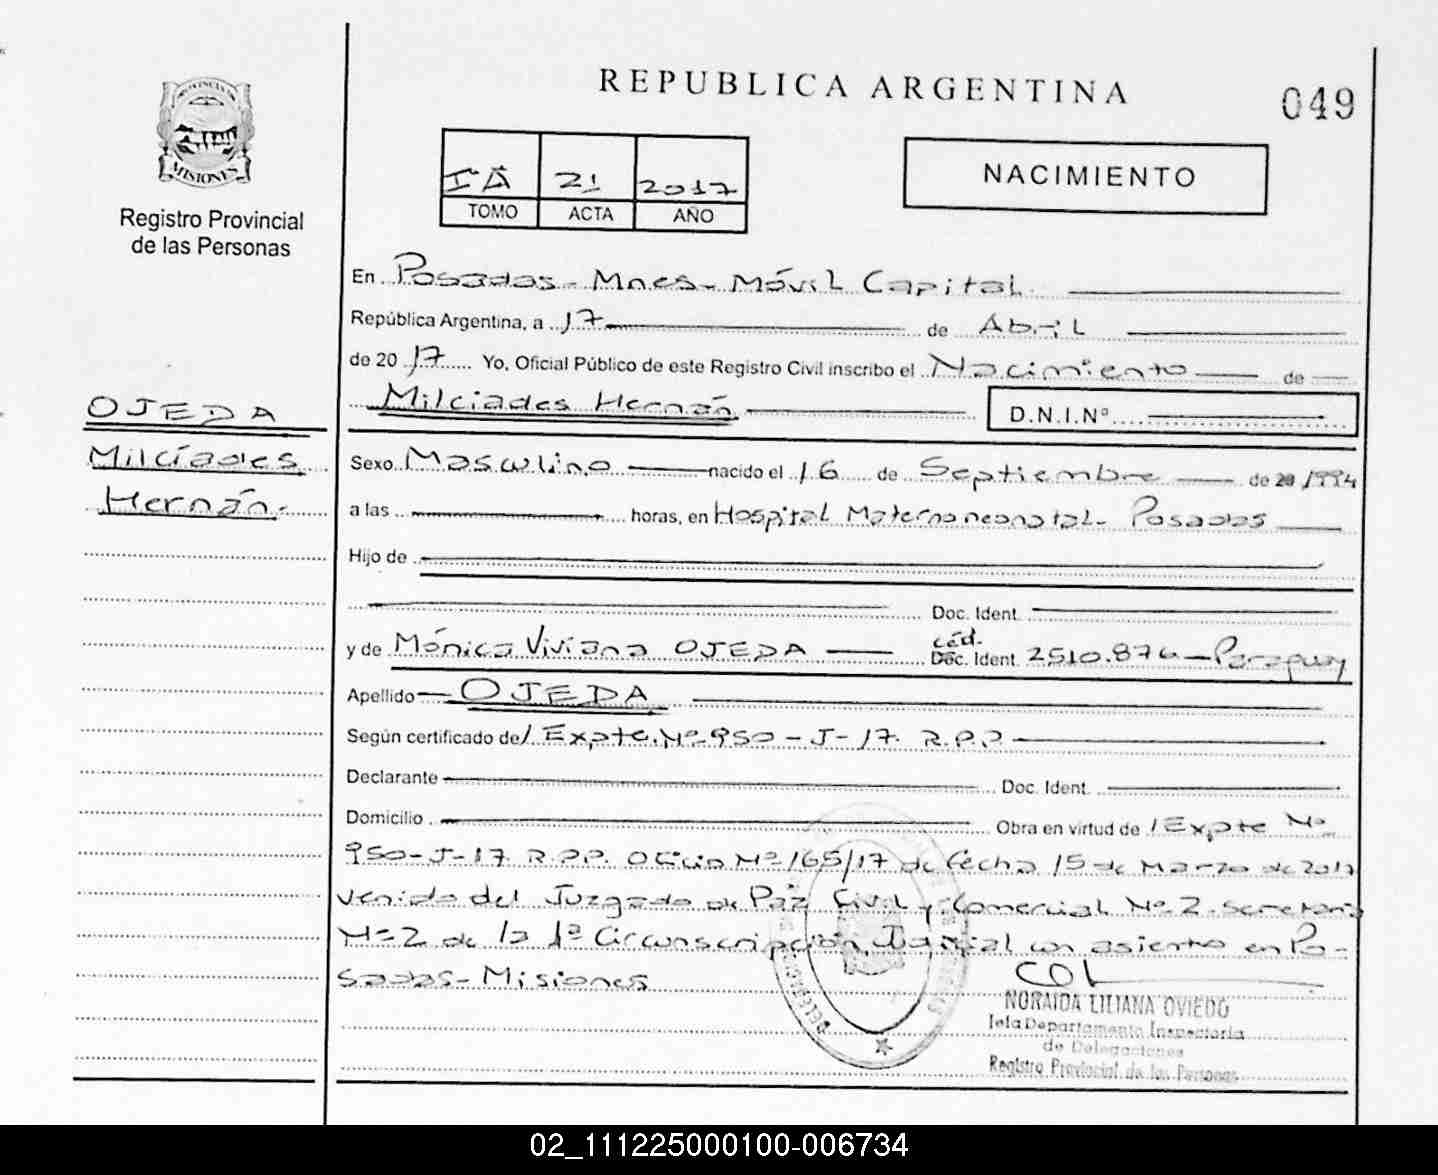 REPUBLICA ARGENTINA
049
PROVINCIA DE
MISIONES
Registro Provincial
de las Personas
21 2017
TOMO ACTA AÑO
NACIMIENTO
En Posadas - Mnes - Móvil Capital
República Argentina, a 17 de Abril
de 20 17 Yo, Oficial Público de este Registro Civil inscribo el Nacimiento de
Milciades Hernán D.N.I.Nº
OJEDA
Milcíades
Hernán.
Sexo Masculino nacido el 16 de Septiembre de 20 1994
a las horas, en Hospital Maternoneonatal - Posadas
Hijo de
Doc. Ident.
y de Mónica Viviana OJEDA Céd. Doc. Ident. 2510.876 - Paraguay
Apellido OJEDA
Según certificado de / Expte. Nº 950 - J - 17. R.P.P.
Declarante Doc. Ident.
Domicilio Obra en virtud de / Expte Nº
950-J-17 R.P.P. Oficio Nº 165/17 de fecha 15 de Marzo de 2017
venido del Juzgado de Paz Civil y Comercial Nº 2. Secretaria
Nº 2 de la 1ª Circunscripción Judicial con asiento en Po-
sadas - Misiones
NORAIDA LILIANA OVIEDO
Jefa Departamento Inspectoria
de Delegaciones
Registro Provincial de las Personas
02_111225000100-006734